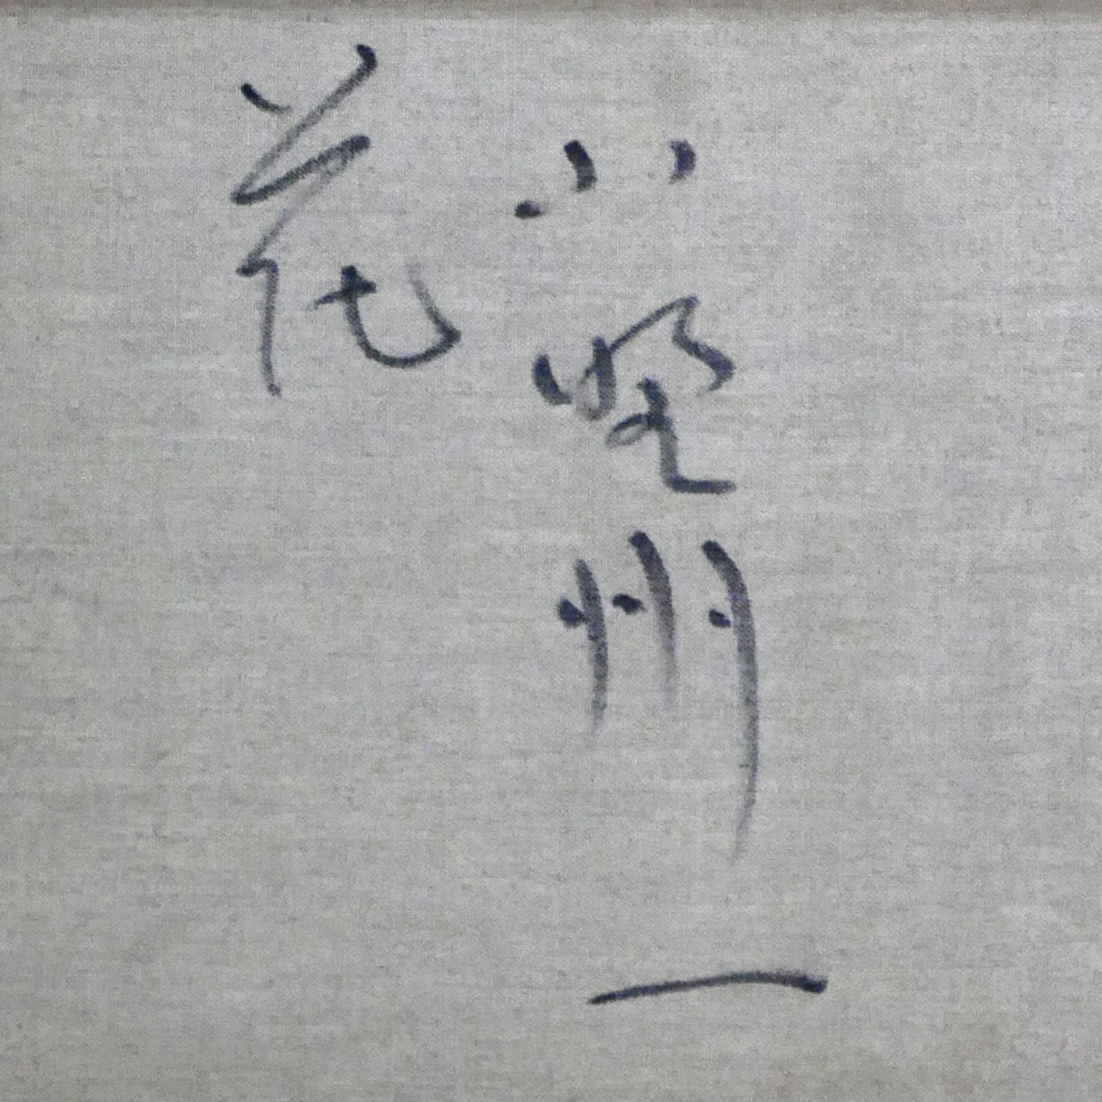 小堅州一
花